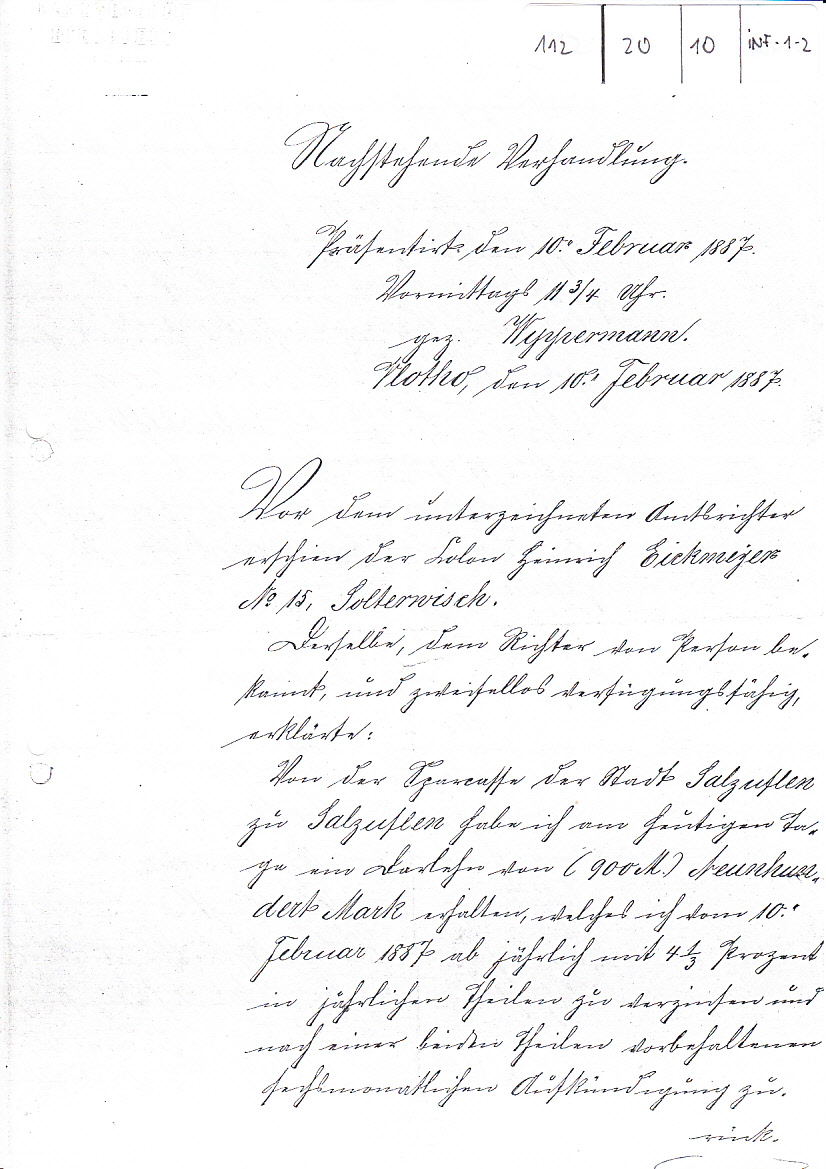 112 20 10 INF-1-2
Nachstehende Verhandlung.
Präsentirt den 10. Februar 1887.
Vormittags 11 3/4 Uhr.
gez. Wippermann.
Vlotho, den 10. Februar 1887.
Vor dem unterzeichneten Amtsrichter
erschien der Colon Heinrich Eickmeyer
No 15, Solterwisch.
Derselbe, dem Richter von Person be-
kannt, und zweifellos verfügungsfähig,
erklärte:
Von der Sparcasse der Stadt Salzuflen
zu Salzuflen habe ich am heutigen Ta-
ge ein Darlehn von (900 M.) Neunhun-
dert Mark erhalten, welches ich vom 10.
Februar 1887 ab jährlich mit 4 1/3 Prozent
in jährlichen Theilen zu verzinsen und
nach einer beiden Theilen vorbehaltenen
sechsmonatlichen Aufkündigung zu-
rück-